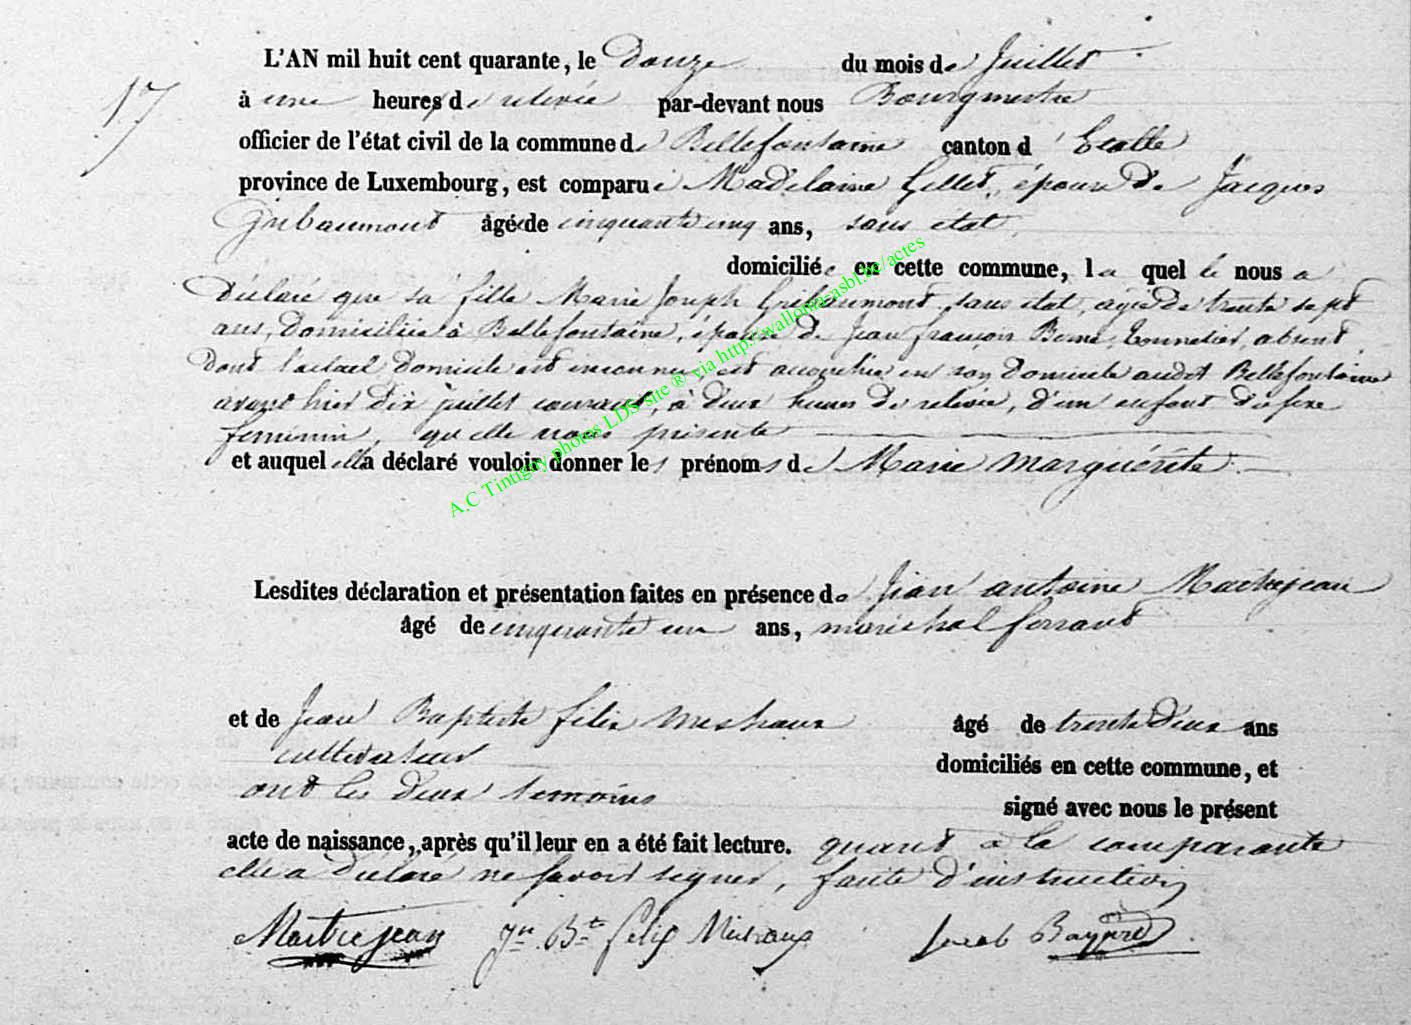 L'AN mil huit cent quarante, le Douze du mois de Juillet
17
à une heures de relevée par-devant nous Bourgmestre
officier de l'état civil de la commune de Bellefontaine canton d'Etalle
province de Luxembourg, est comparue Madelaine Gillet, épouse de Jacques
Gribaumont âgée de cinquante cinq ans, sans état,
domiciliée en cette commune, laquelle nous a
Déclaré que sa fille Marie Joseph Gribaumont, sans état, agée de trente sept
ans, domiciliée à Bellefontaine, épouse de Jean françois tonnelier, absent,
dont l'actuel domicile est inconnu, est accouchée en son domicile audit Bellefontaine
avant hier dix juillet courant, à deux heures de relevée, d'un enfant du sexe
feminin, qu'elle nous présente
et auquel ella déclaré vouloir donner les prénoms de Marie Marguérite.
Lesdites déclaration et présentation faites en présence de Jean antoine Maitrejean
âgé de cinquante un ans, maréchal ferrant
et de Jean Baptiste félix âgé de trente deux ans
cultivateur
domiciliés en cette commune, et
ont les deux témoins signé avec nous le présent
acte de naissance, après qu'il leur en a été fait lecture. quant à la comparante
elle a déclaré ne savoir signer, faute d'instruction
Maitrejean Jn Bte félix Jacob
A.C Tintigny photos LDS site ® via http://wallonia-asbl.be/actes